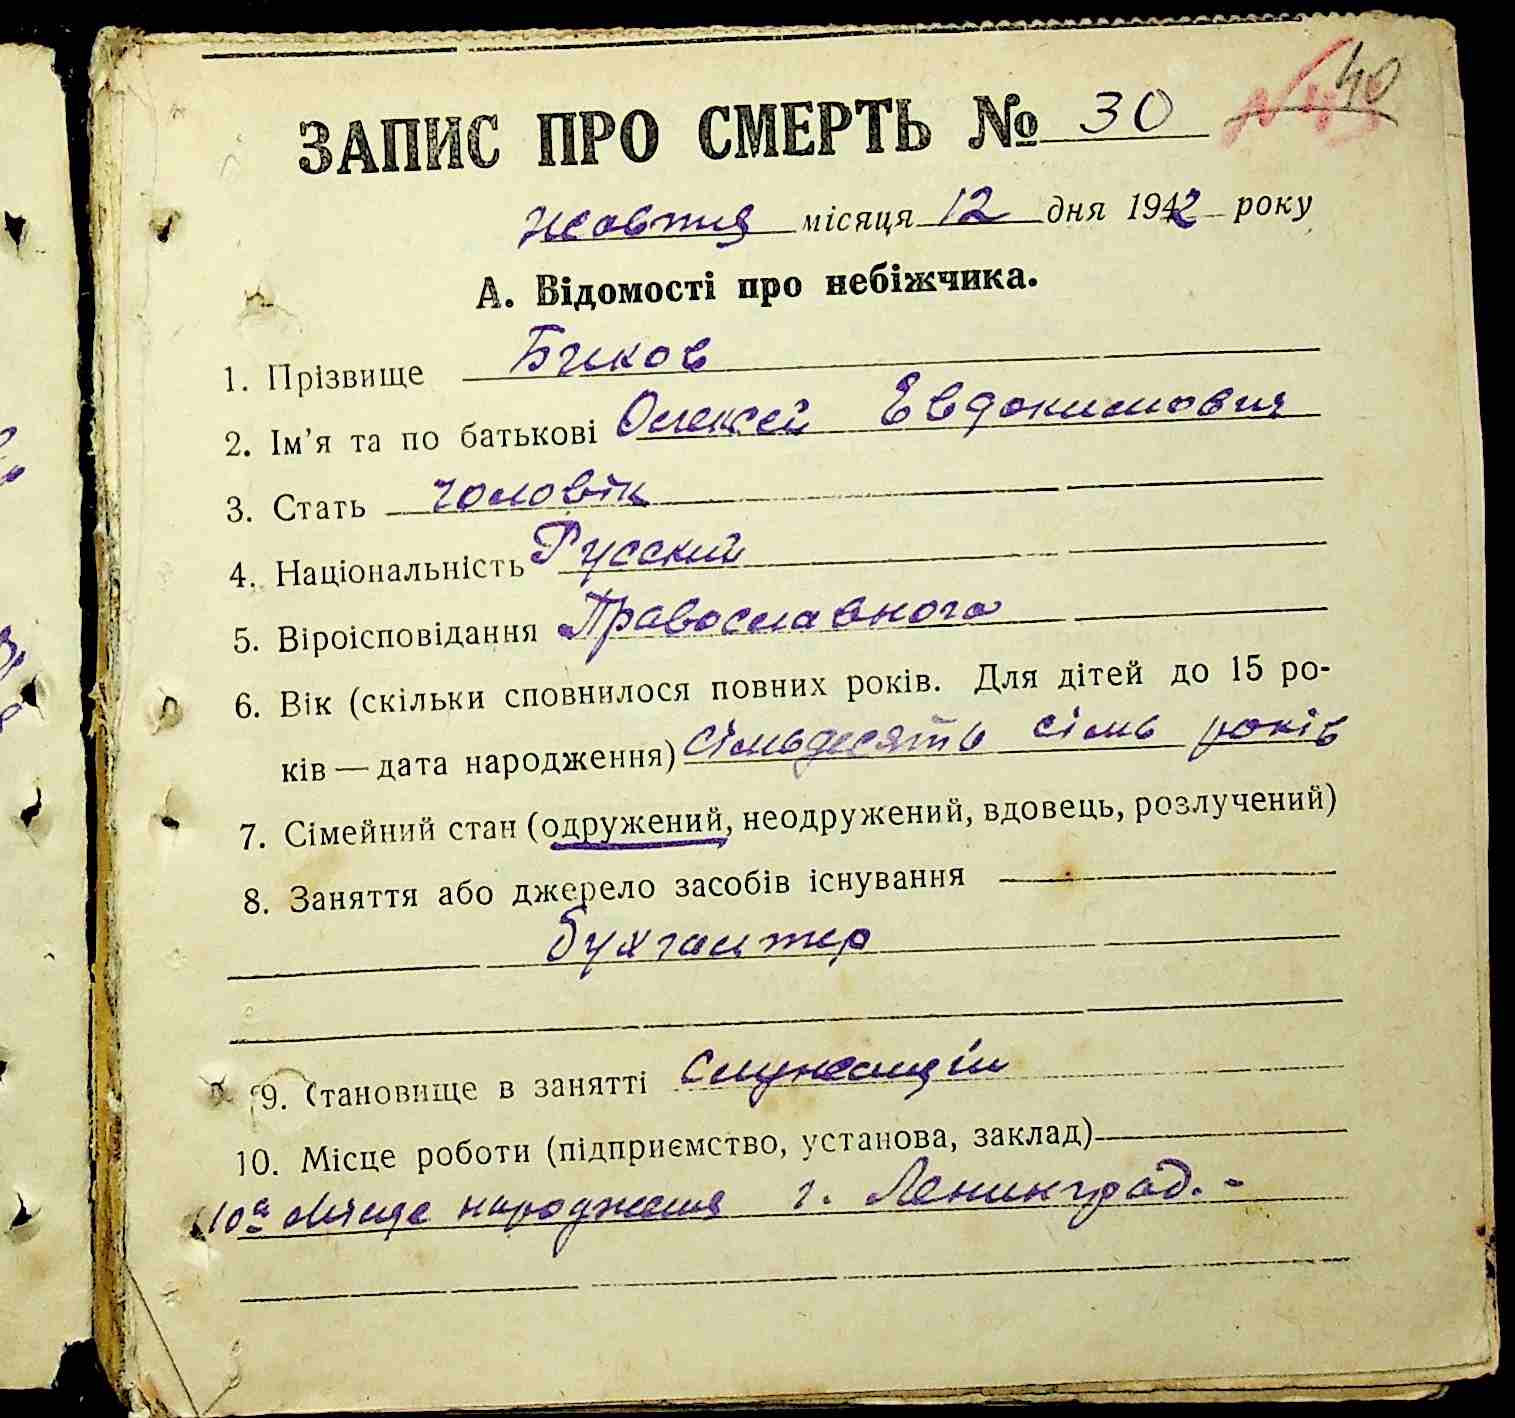 40
ЗАПИС ПРО СМЕРТЬ № 30
Жовтня місяця 12 дня 1942 року
А. Відомості про небіжчика.
1. Прізвище Биков
2. Ім'я та по батькові Олексей Евдокимович
3. Стать чоловік
4. Національність Русский
5. Віроісповідання Православного
6. Вік (скільки сповнилося повних років. Для дітей до 15 ро-
ків — дата народження) Сімьдесять сімь років
7. Сімейний стан (одружений, неодружений, вдовець, розлучений)
8. Заняття або джерело засобів існування
бухгалтер
9. Становище в занятті Служащій
10. Місце роботи (підприємство, установа, заклад)
10а Місце народження г. Ленинград. -